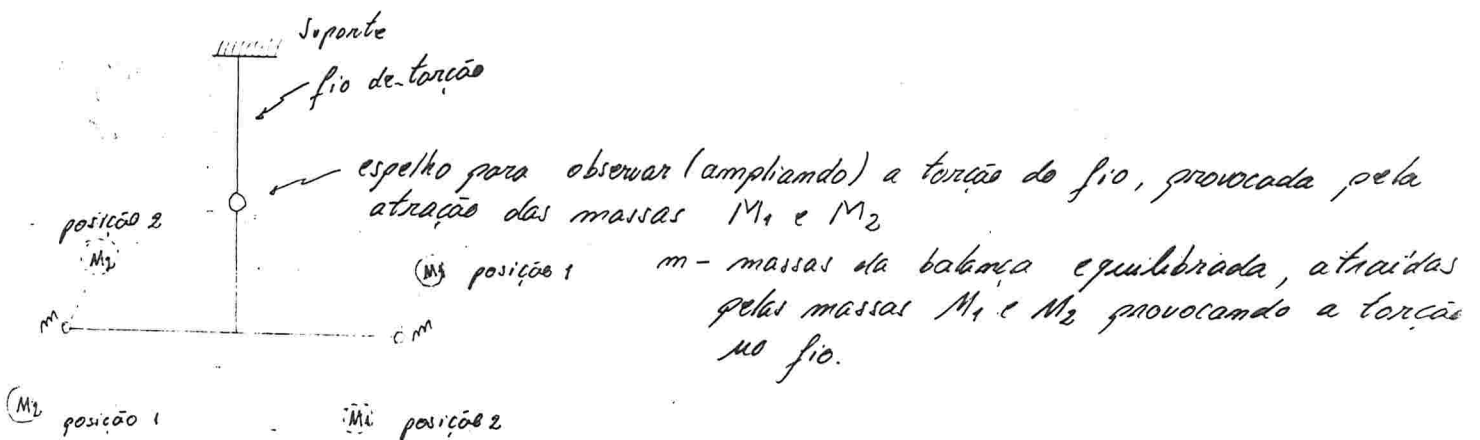 Suporte
fio de torção
espelho para observar (ampliando) a torção do fio, provocada pela
atração das massas M1 e M2
posição 2
M2
M1 posição 1
m - massas da balança equilibrada, atraídas
pelas massas M1 e M2 provocando a torção
no fio.
m
m
M2 posição 1
M1 posição 2